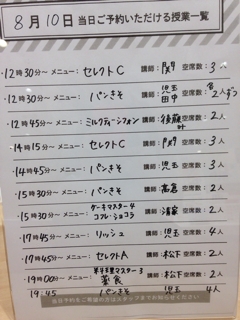 8月10日 当日ご予約いただける授業一覧
12時30分～ メニュー: セレクトC 講師: 関 空席数: 3人
12時30分～ メニュー: パンきそ 講師: 児玉 田中 空席数: 各2人ずつ
12時45分～ メニュー: ミルクティーシフォン 講師: 後藤 空席数: 2人
14時15分～ メニュー: セレクトC 講師: 関 空席数: 3人
14時45分～ メニュー: パンきそ 講師: 児玉 空席数: 3人
15時30分～ メニュー: パンきそ 講師: 高倉 空席数: 2人
15時30分～ メニュー: ケーキマスター4 コフレ・ショコラ 講師: 空席数: 2人
17時45分～ メニュー: リッシュ 講師: 児玉 空席数: 4人
17時45分～ メニュー: セレクトA 講師: 松下 空席数: 2人
19時00分～ メニュー: マスター3 薬食 講師: 松下 空席数: 2人
19:45 パンきそ 児玉 4人
当日予約をご希望の方はスタッフまでお知らせください